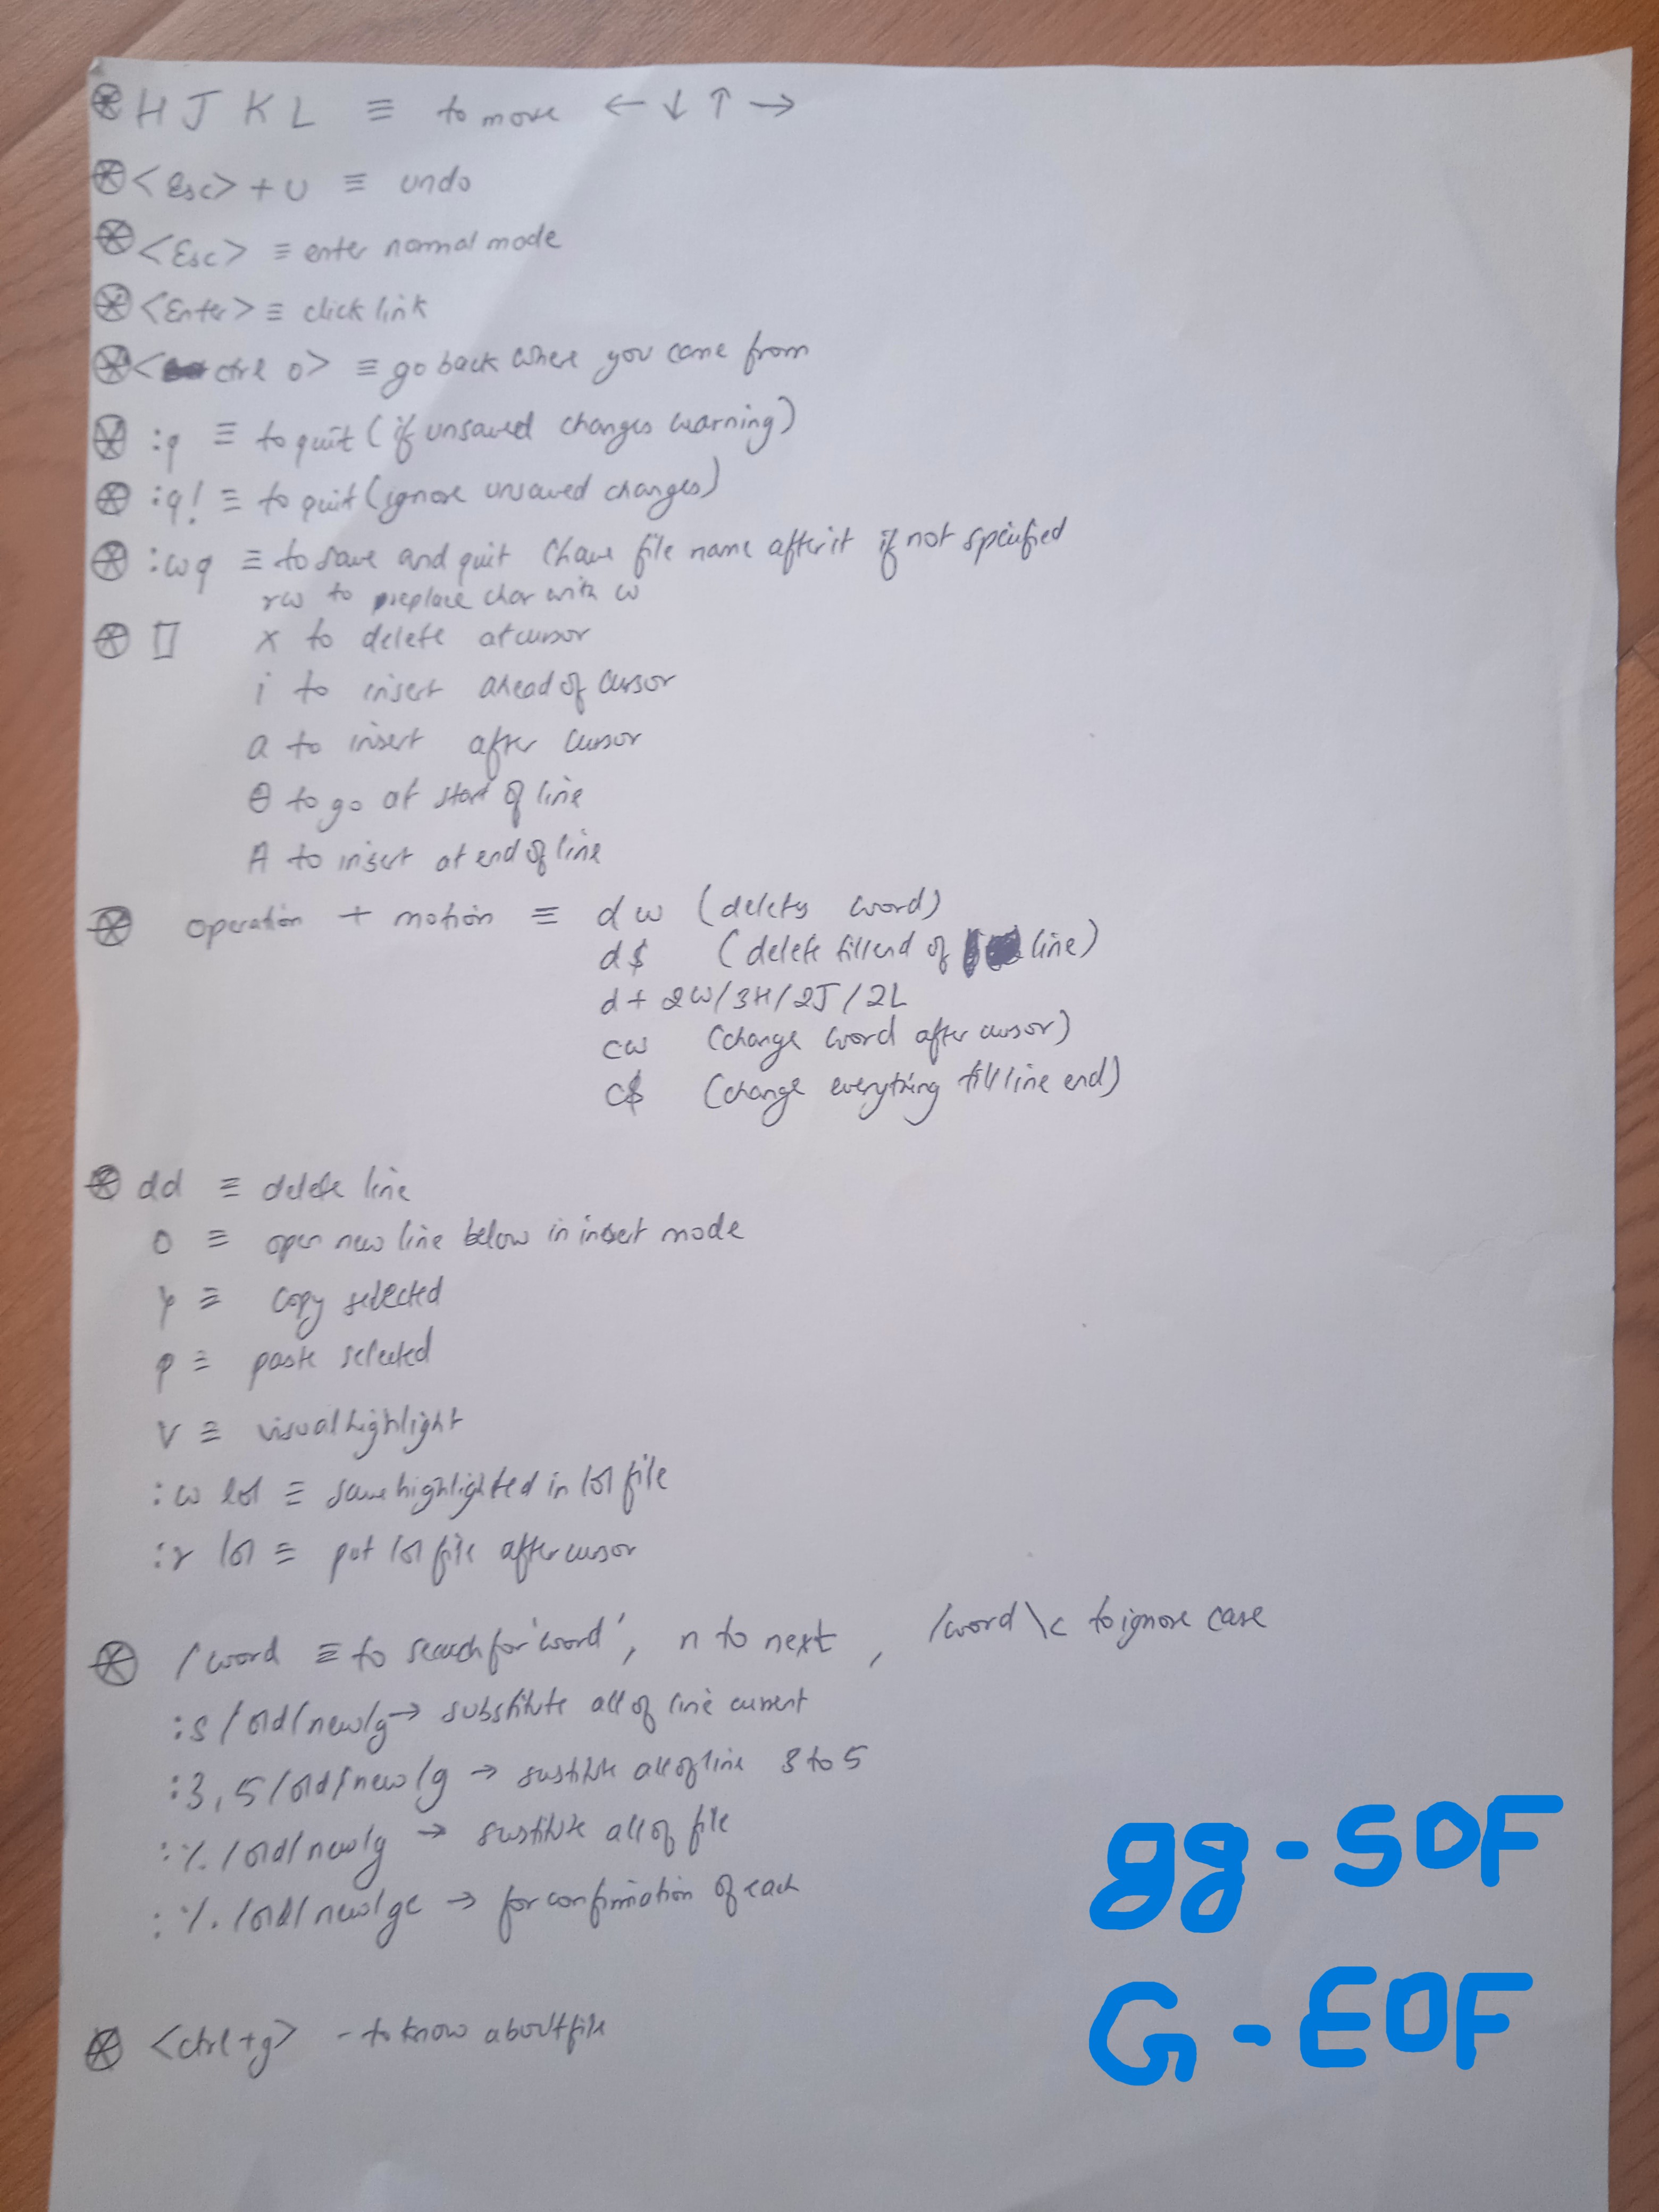 H J K L ≡ to move ← ↓ ↑ →
<Esc> + U ≡ undo
<Esc> ≡ enter normal mode
<Enter> ≡ click link
<ctrl o> ≡ go back where you came from
:q ≡ to quit (if unsaved changes warning)
:q! ≡ to quit (ignore unsaved changes)
:wq ≡ to save and quit (have file name after it if not specified
rw to replace char with w
[] x to delete at cursor
i to insert ahead of cursor
a to insert after cursor
0 to go at start of line
A to insert at end of line
operation + motion ≡ dw (deletes word)
d$ (delete till end of line)
d + 2W/3H/2J/2L
cw (change word after cursor)
c$ (change everything till line end)
dd ≡ delete line
o ≡ open new line below in insert mode
y ≡ copy selected
p ≡ paste selected
v ≡ visual highlight
:w lol ≡ save highlighted in lol file
:r lol ≡ put lol file after cursor
/word ≡ to search for 'word', n to next , /word\c to ignore case
:s/old/new/g → substitute all of line current
:3,5/old/new/g → sustitute all of line 3 to 5
:%/old/new/g → sustitute all of file
:%/old/new/gc → for confirmation of each
gg - SOF
G - EOF
<ctrl+g> - to know about file